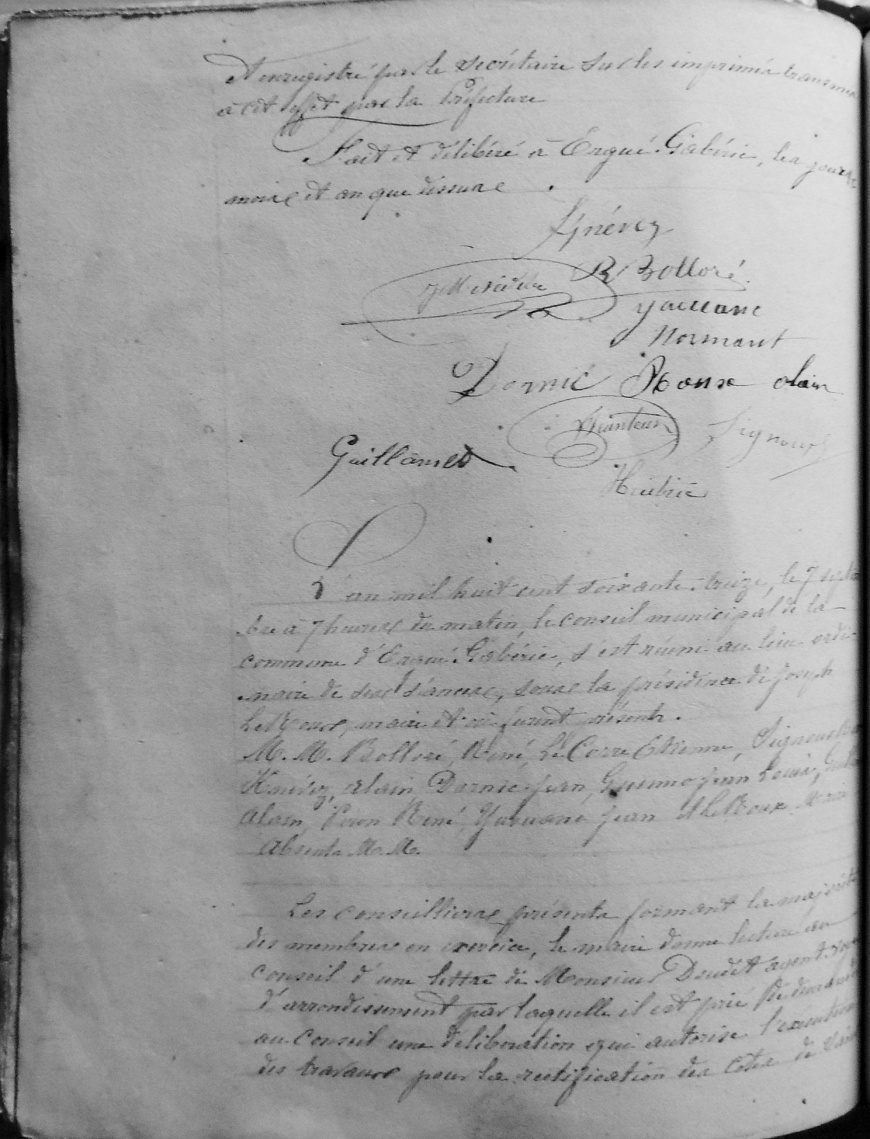 et enregistré par le secrétaire sur les imprimés transmis
à cet effet par la Préfecture
Fait et délibéré à Ergué-Gabéric, les jour
mois et an que dessus.
R Bolloré
Yaouanc
Normant
Dornic Roux Alain
Signour
Guillamet
L'an mil huit cent soixante-treize, le 7 septem
bre à 7 heures du matin, le conseil municipal de la
commune d'Ergué-Gabéric, s'est réuni au lieu ordi
naire de ses séances, sous la présidence de Joseph
Le Roux, maire et où furent présents.
M.M. Bolloré, René, Le Corre Etienne,
Alain Dornic Jean, Guenno Jean Louis,
Alain, René, Yaouanc Jean et Le Roux
Absents M.M.
Les conseillers présents formant la majorité
des membres en exercice, le maire donne lecture au
conseil d'une lettre de Monsieur Doudet agent voyer
d'arrondissement par laquelle il est prié de demander
au conseil une délibération qui autorise l'exécution
des travaux pour la rectification des côtes de